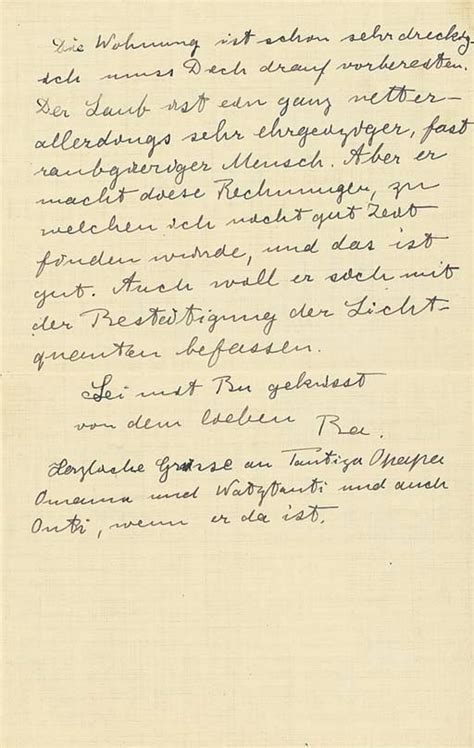 Die Wohnung ist schon sehr dreckig
ich muss Dich drauf vorbereiten.
Der Laub ist ein ganz netter
allerdings sehr ehrgeiziger, fast
raubgieriger Mensch. Aber er
macht diese Rechnungen, zu
welchen ich nicht gut Zeit
finden würde, und das ist
gut. Auch will er sich mit
der Bestätigung der Licht-
quanten befassen.
Sei mit Bu geküsst
von dem lieben
Herzliche Grüsse an Opapa
Omama und und auch
wenn er da ist.